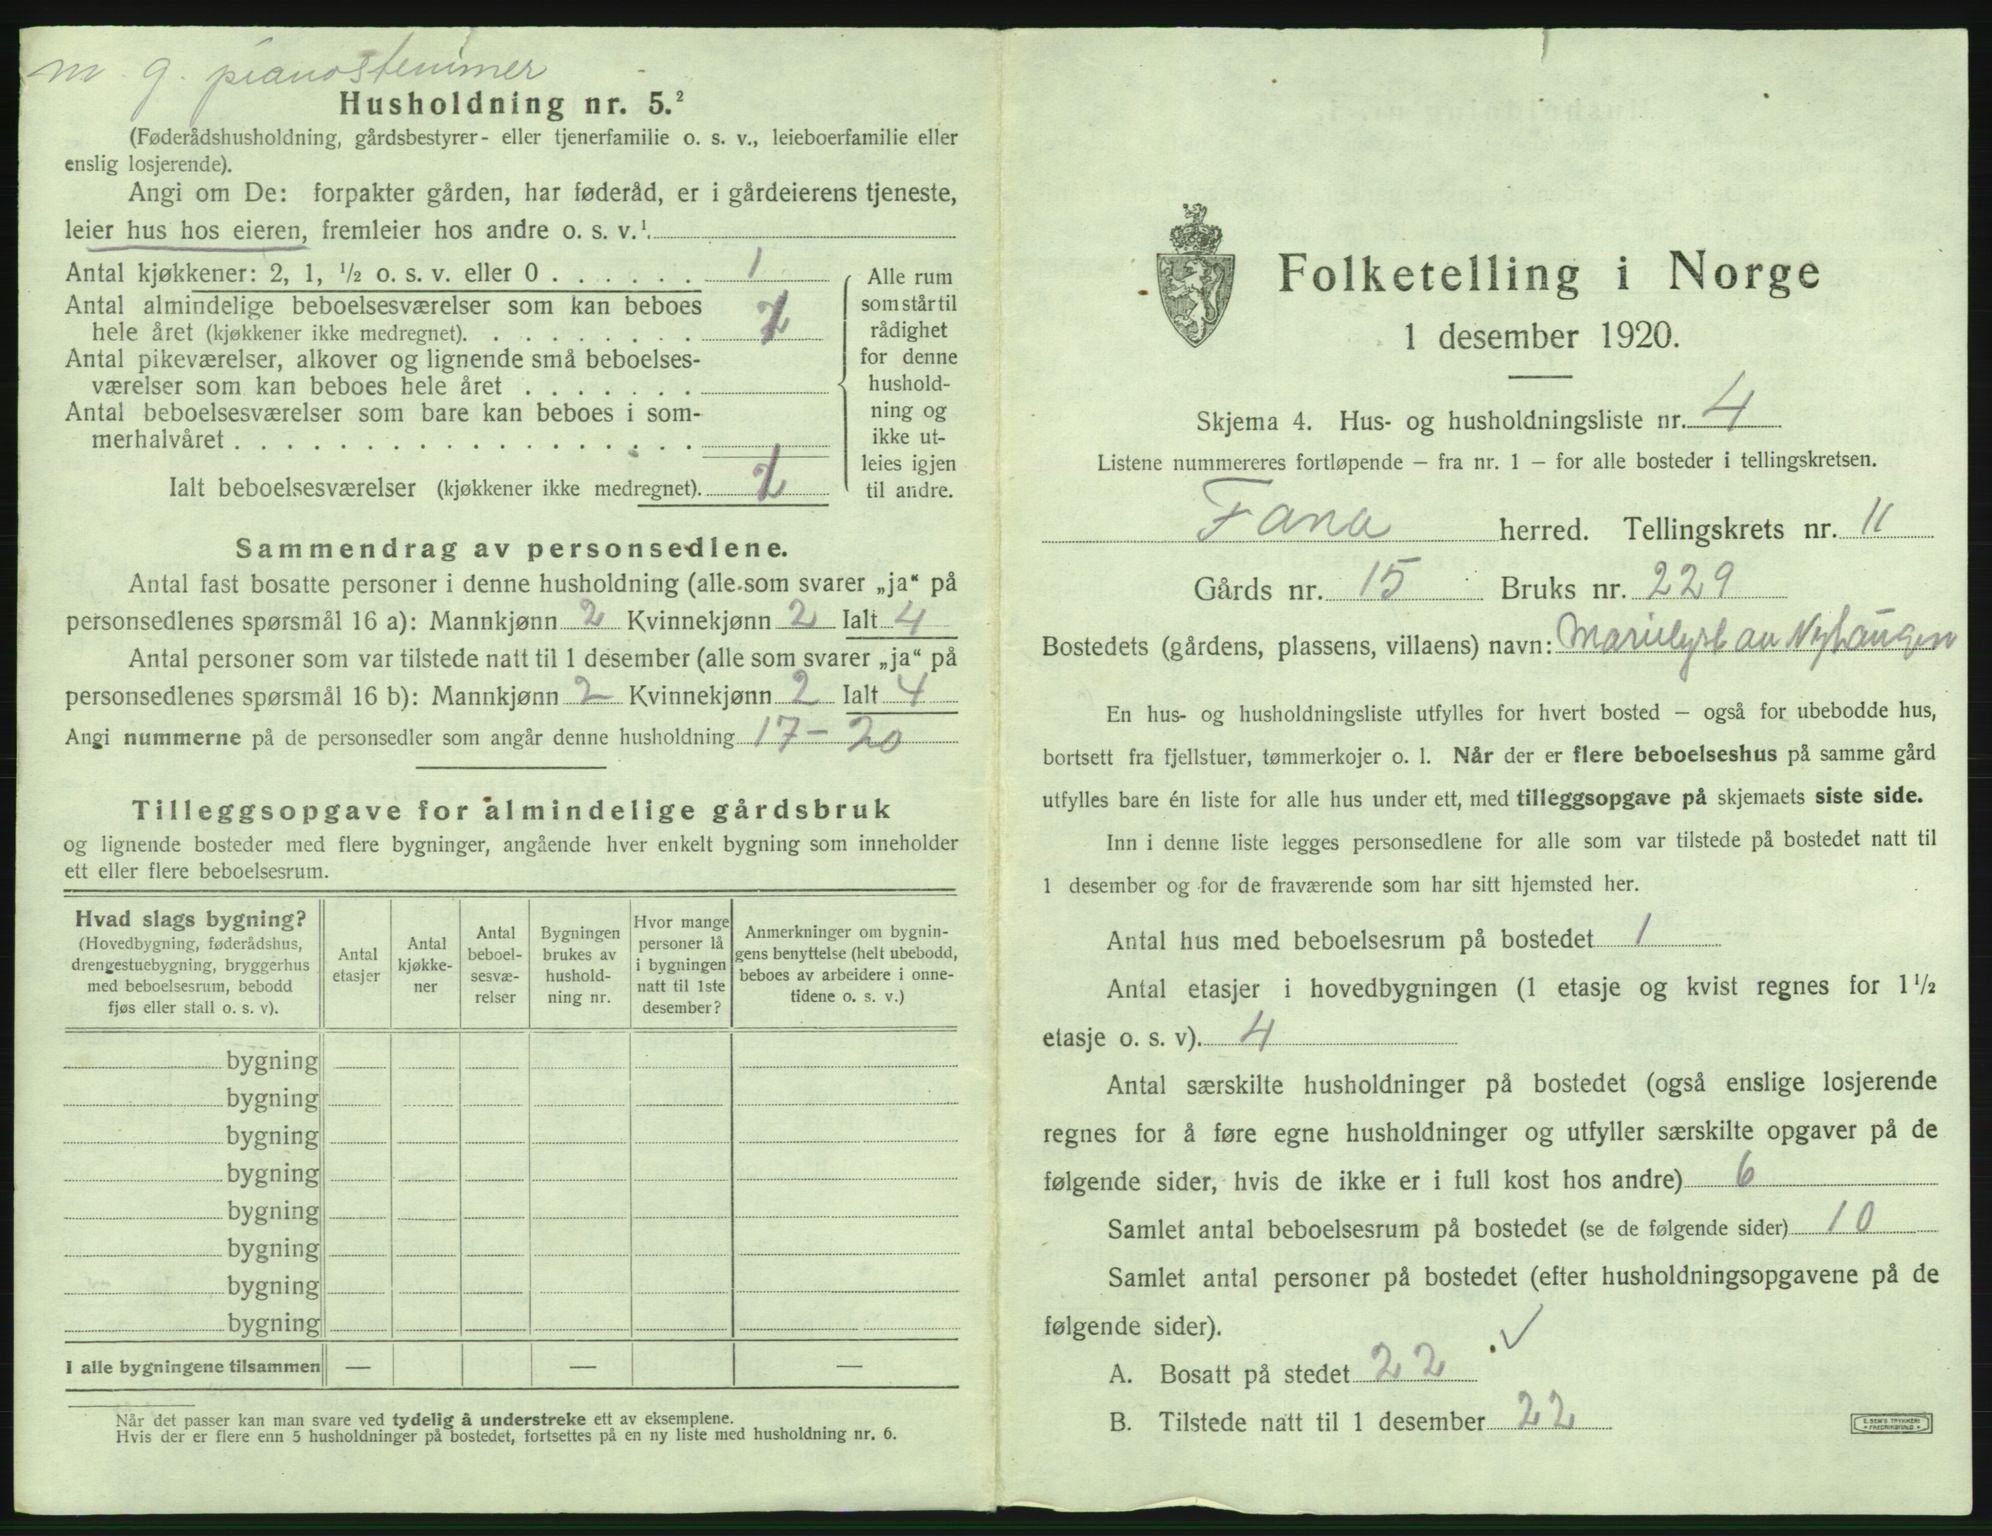 m. g. pianostemmer
Husholdning nr. 5.²
(Føderådshusholdning, gårdsbestyrer- eller tjenerfamilie o. s. v., leieboerfamilie eller
enslig losjerende).
Angi om De: forpakter gården, har føderåd, er i gårdeierens tjeneste,
leier hus hos eieren, fremleier hos andre o. s. v.¹
Antal kjøkkener: 2, 1, ½ o. s. v. eller 0 . . . . . . 1
Antal almindelige beboelsesværelser som kan beboes
hele året (kjøkkener ikke medregnet). . . . . . . . .
Antal pikeværelser, alkover og lignende små beboelses-
værelser som kan beboes hele året . . . . . . .
Antal beboelsesværelser som bare kan beboes i som-
merhalvåret . . . . . . . . . . . . . . . . . .
Ialt beboelsesværelser (kjøkkener ikke medregnet).
Alle rum
som står til
rådighet
for denne
hushold-
ning og
ikke ut-
leies igjen
til andre.
Sammendrag av personsedlene.
Antal fast bosatte personer i denne husholdning (alle som svarer „ja“ på
personsedlenes spørsmål 16 a): Mannkjønn 2 Kvinnekjønn 2 Ialt 4
Antal personer som var tilstede natt til 1 desember (alle som svarer „ja“ på
personsedlenes spørsmål 16 b): Mannkjønn 2 Kvinnekjønn 2 Ialt 4
Angi nummerne på de personsedler som angår denne husholdning 17 - 20
Tilleggsopgave for almindelige gårdsbruk
og lignende bosteder med flere bygninger, angående hver enkelt bygning som inneholder
ett eller flere beboelsesrum.
Hvad slags bygning?
(Hovedbygning, føderådshus,
drengestuebygning, bryggerhus
med beboelsesrum, bebodd
fjøs eller stall o. s. v).
Antal
etasjer
Antal
kjøkke-
ner
Antal
beboel-
sesvæ-
relser
Bygningen
brukes av
hushold-
ning nr.
Hvor mange
personer lå
i bygningen
natt til 1ste
desember?
Anmerkninger om bygnin-
gens benyttelse (helt ubebodd,
beboes av arbeidere i onne-
tidene o. s. v.)
bygning
bygning
bygning
bygning
bygning
bygning
bygning
bygning
I alle bygningene tilsammen — — —
Når det passer kan man svare ved tydelig å understreke ett av eksemplene.
Hvis der er flere enn 5 husholdninger på bostedet, fortsettes på en ny liste med husholdning nr. 6.
Folketelling i Norge
1 desember 1920.
Skjema 4. Hus- og husholdningsliste nr. 4
Listene nummereres fortløpende — fra nr. 1 — for alle bosteder i tellingskretsen.
Fana herred. Tellingskrets nr. 11
Gårds nr. 15 Bruks nr. 229
Bostedets (gårdens, plassens, villaens) navn: Marielyst av Nyhaugen
En hus- og husholdningsliste utfylles for hvert bosted — også for ubebodde hus,
bortsett fra fjellstuer, tømmerkojer o. l. Når der er flere beboelseshus på samme gård
utfylles bare én liste for alle hus under ett, med tilleggsopgave på skjemaets siste side.
Inn i denne liste legges personsedlene for alle som var tilstede på bostedet natt til
1 desember og for de fraværende som har sitt hjemsted her.
Antal hus med beboelsesrum på bostedet 1
Antal etasjer i hovedbygningen (1 etasje og kvist regnes for 1 ½
etasje o. s. v). 4
Antal særskilte husholdninger på bostedet (også enslige losjerende
regnes for å føre egne husholdninger og utfyller særskilte opgaver på de
følgende sider, hvis de ikke er i full kost hos andre) 6
Samlet antal beboelsesrum på bostedet (se de følgende sider) 10
Samlet antal personer på bostedet (efter husholdningsopgavene på de
følgende sider).
A. Bosatt på stedet 22
B. Tilstede natt til 1 desember 22
E. SEM'S TRYKKERI
FREDRIKSHALD